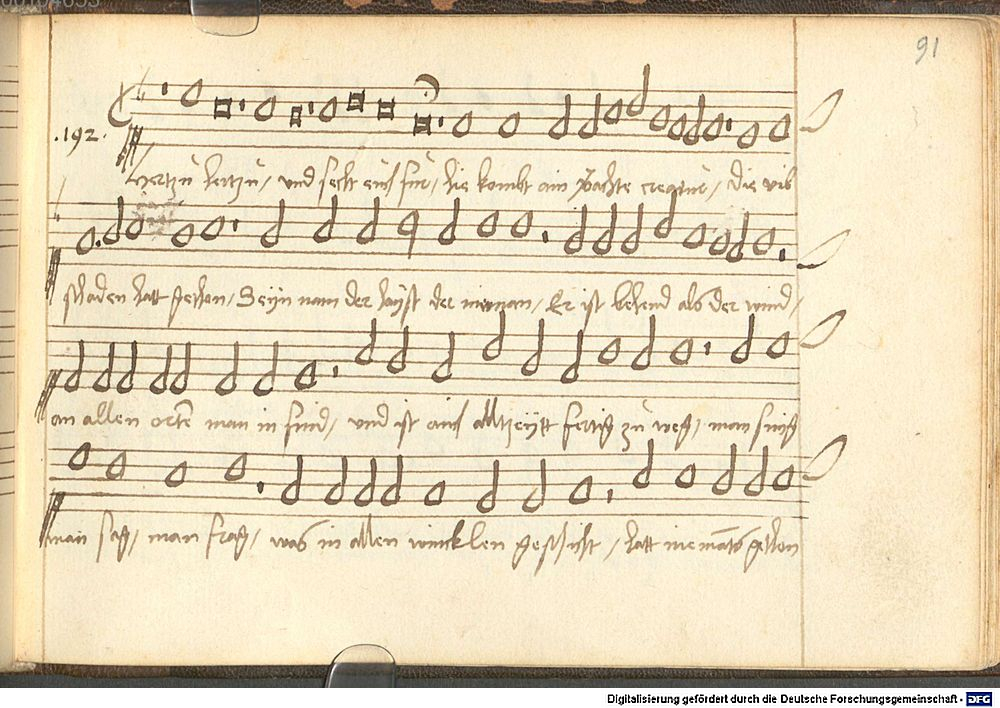 91
.192.
Hertzu hertzu/ und secht euch für/ hie kombt ain schlachte creatur/ die vil
schaden hatt gethon/ Seyn nam der hayst der nieman/ Er ist behend als der wind/
an allen orten man in find/ und ist auch alltzeytt fertig zu weg/ man sing
man sag/ man frag/ was in allen wincklen geschicht/ hatt niemats gethon
Digitalisierung gefördert durch die Deutsche Forschungsgemeinschaft - DFG